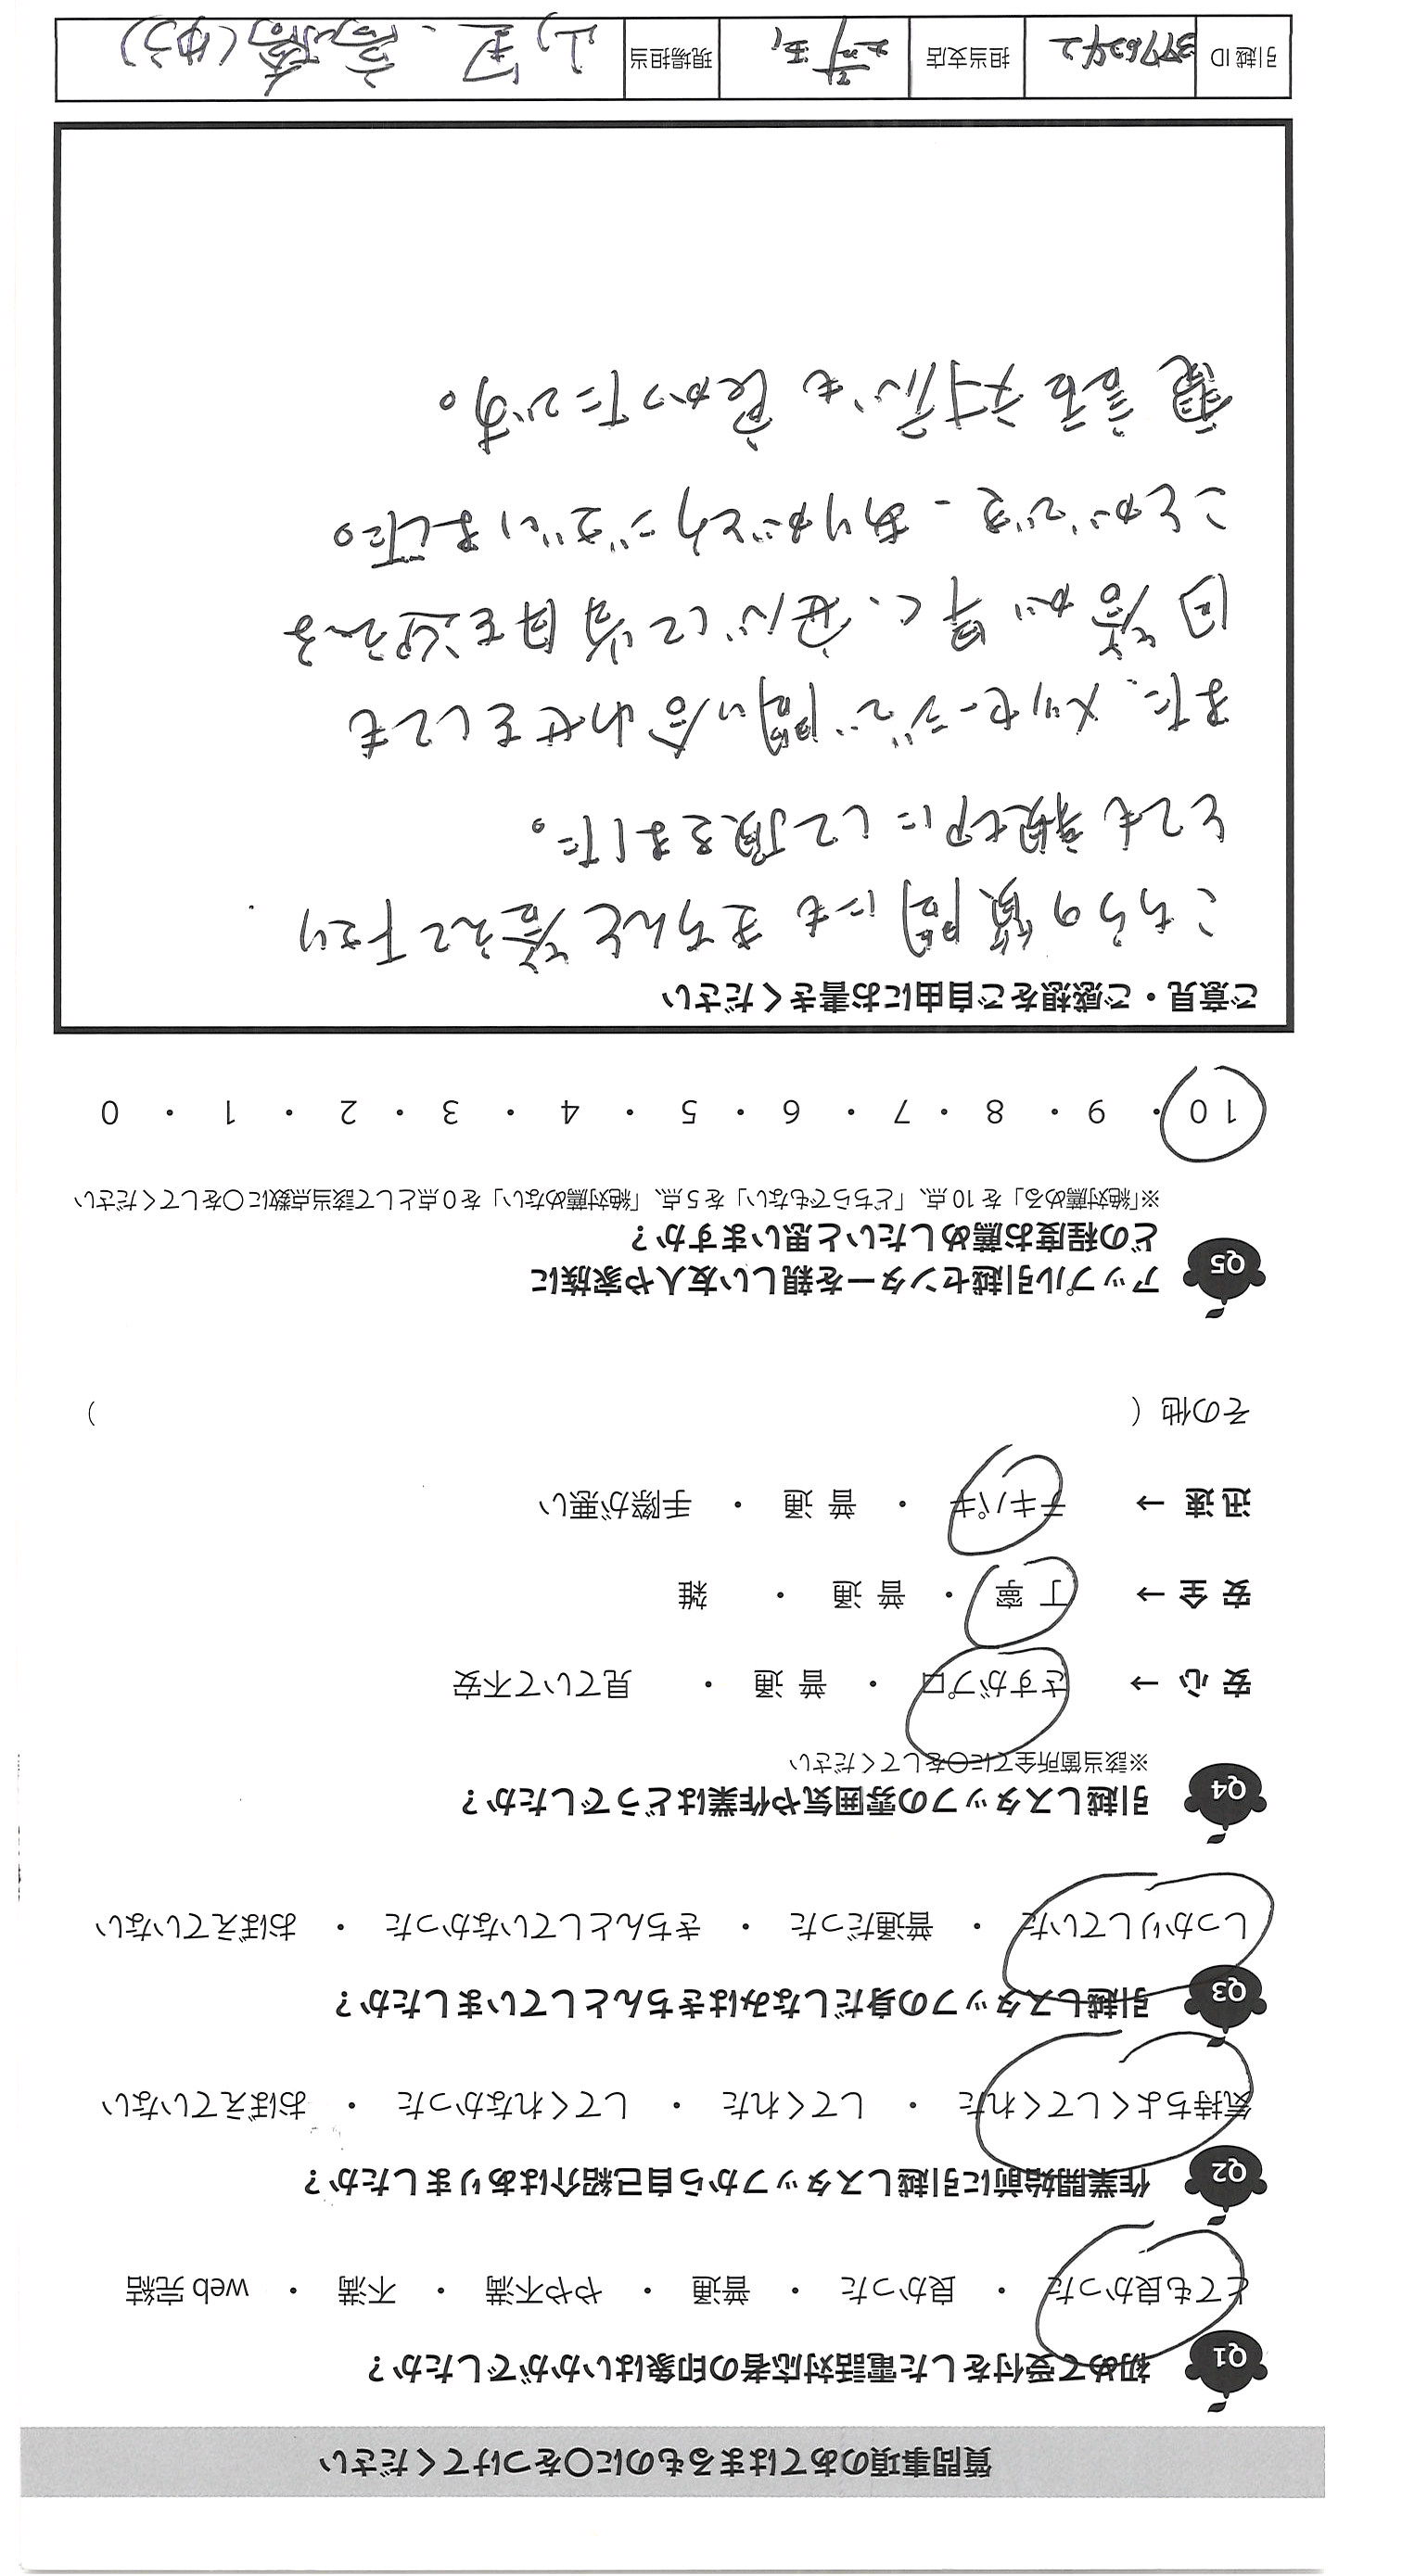 質問事項のあてはまるものに〇をつけてください
Q1 初めて受付をした電話対応者の印象はいかがでしたか？
とても良かった ・ 良かった ・ 普通 ・ やや不満 ・ 不満 ・ web 完結
Q2 作業開始前に引越しスタッフから自己紹介はありましたか？
気持ちよくしてくれた ・ してくれた ・ してくれなかった ・ おぼえていない
Q3 引越しスタッフの身だしなみはきちんとしていましたか？
しっかりしていた ・ 普通だった ・ きちんとしていなかった ・ おぼえていない
Q4 引越しスタッフの雰囲気や作業はどうでしたか？
※該当箇所全てに〇をしてください
安 心 → さすがプロ ・ 普 通 ・ 見ていて不安
安 全 → 丁 寧 ・ 普 通 ・ 雑
迅 速 → テキパキ ・ 普 通 ・ 手際が悪い
その他（ ）
Q5 アップル引越センターを親しい友人や家族に
どの程度お薦めしたいと思いますか？
※「絶対薦める」を 10 点、「どちらでもない」を 5 点、「絶対薦めない」を 0 点として該当点数に〇をしてください
10 ・ 9 ・ 8 ・ 7 ・ 6 ・ 5 ・ 4 ・ 3 ・ 2 ・ 1 ・ 0
ご意見・ご感想をご自由にお書きください
こちらの質問にもきちんと答えて下さり
とても親切にして頂きました。
また、メッセージで問い合わせをしても
回答が早く、安心して当日を迎える
ことができ、ありがとうございました。
電話対応も良かったです。
引越 ID 担当支店 埼玉 現場担当 高橋(ゆう)